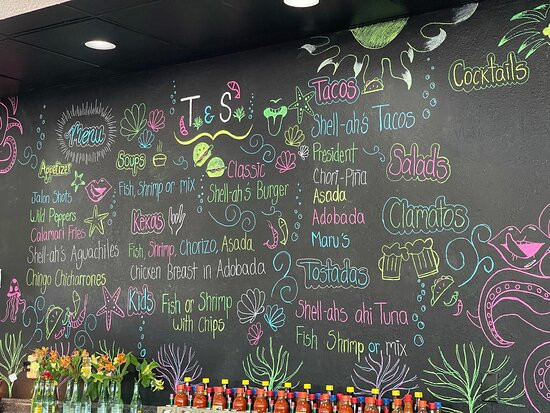 Menu
Appetizer
Jalan Shots
Wild Poppers
Calamari Fries
Shell-ah's Aguachiles
Chingo Chicharrones
Soups
Fish Shrimp or mix
Kexas
Fish, Shrimp, Chorizo, Asada
Chicken Breast in Adobada
Kids
Fish or Shrimp
with Chips
T & S
Classic
Shell-ah's Burger
Tacos
Shell-ah's Tacos
President
Chori-Piña
Asada
Adobada
Maru's
Tostadas
Shell-ahs ahi Tuna
Fish Shrimp or mix
Cocktails
Salads
Clamatos